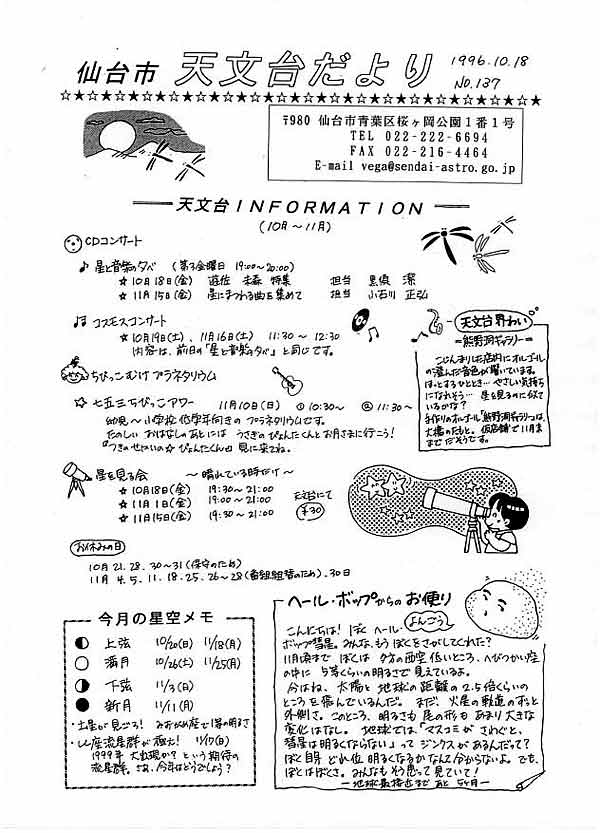 仙台市 天文台だより 1996.10.18
No.137
〒980 仙台市青葉区桜ヶ岡公園1番1号
TEL 022-222-6694
FAX 022-216-4464
E-mail vega@sendai-astro.go.jp
天文台INFORMATION
(10月〜11月)
CDコンサート
♪ 星と音楽の夕べ (第3金曜日 19:00〜20:00)
☆ 10月18日(金) 遊佐 未森 特集 担当 黒須 潔
☆ 11月15日(金) 星にまつわる曲を集めて 担当 小石川 正弘
♫ コスモスコンサート
☆ 10月19日(土)、11月16日(土) 11:30〜12:30
内容は、前日の「星と音楽の夕べ」と同じです。
ちびっこむけ プラネタリウム
☆ 七五三ちびっこアワー 11月10日(日) ①10:30〜 ②11:30〜
幼児〜小学校低学年向きのプラネタリウムです。
たのしい おはなしのあとには うさぎのぴょんたくんとお月さまに行こう!
『つきのせかいの☆ぴょんたくん』見に来てね。
天文台界わい
=熊野洞ギャラリー=
こじんまりした店内にオルゴール
の澄んだ音色が響いています。
ほっとするひととき… やさしい気持ち
になれそう… 星を見るのに似て
いるかな?
手作りのオルゴール「熊野洞ギャラリー」は、
大橋のたもと。仮店舗で11月ま
までだそうです。
星を見る会 〜晴れている時だけ〜
☆ 10月18日(金) 19:30〜21:00
☆ 11月1日(金) 19:00〜21:00
☆ 11月15日(金) 19:30〜21:00
天文台にて
¥30
お休みの日
10月 21.28.30〜31(保守のため)
11月 4.5.11.18.25.26〜28(番組組替のため).30日
今月の星空メモ
上弦 10/20(日) 11/18(月)
満月 10/26(土) 11/25(月)
下弦 11/3(日)
新月 11/11(月)
・土星が見ごろ! みずがめ座で1等の明るさ
・しし座流星群が極大! 11/17(日)
1999年 大出現か?という期待の
流星群。さあ、今年はどうでしょう?
ヘール・ボップからの お便り
こんにちは! ぼく ヘール・
よんごう
ボップ彗星。みんな、もうぼくをさがしてくれた?
11月頃まで ぼくは 夕方の西空低いところ、へびつかい座
の中に 5等くらいの明るさで見えているよ。
今はね、太陽と地球の距離の2.5倍くらいの
ところを飛んでいるんだ。まだ、火星の軌道のずっと
外側さ。このところ、明るさも尾の形も あまり大きな
変化はなし。地球では、「マスコミが さわぐと、
彗星は明るくならない」って ジンクスがあるんだって?
ぼく自身 どれ位 明るくなるかなんて分からないよ。でも、
ぼくはぼくさ。みんなもそう思って見ていて!
―地球最接近まで あと 5ヶ月―